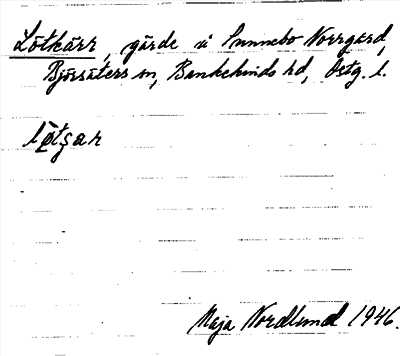 Lötkärr, gärde å Sunnebo Norrgård,
Björsäters sn, Bankekinds hd, Östg. l.
lø̀tʂar
Maja Nordlund 1946.